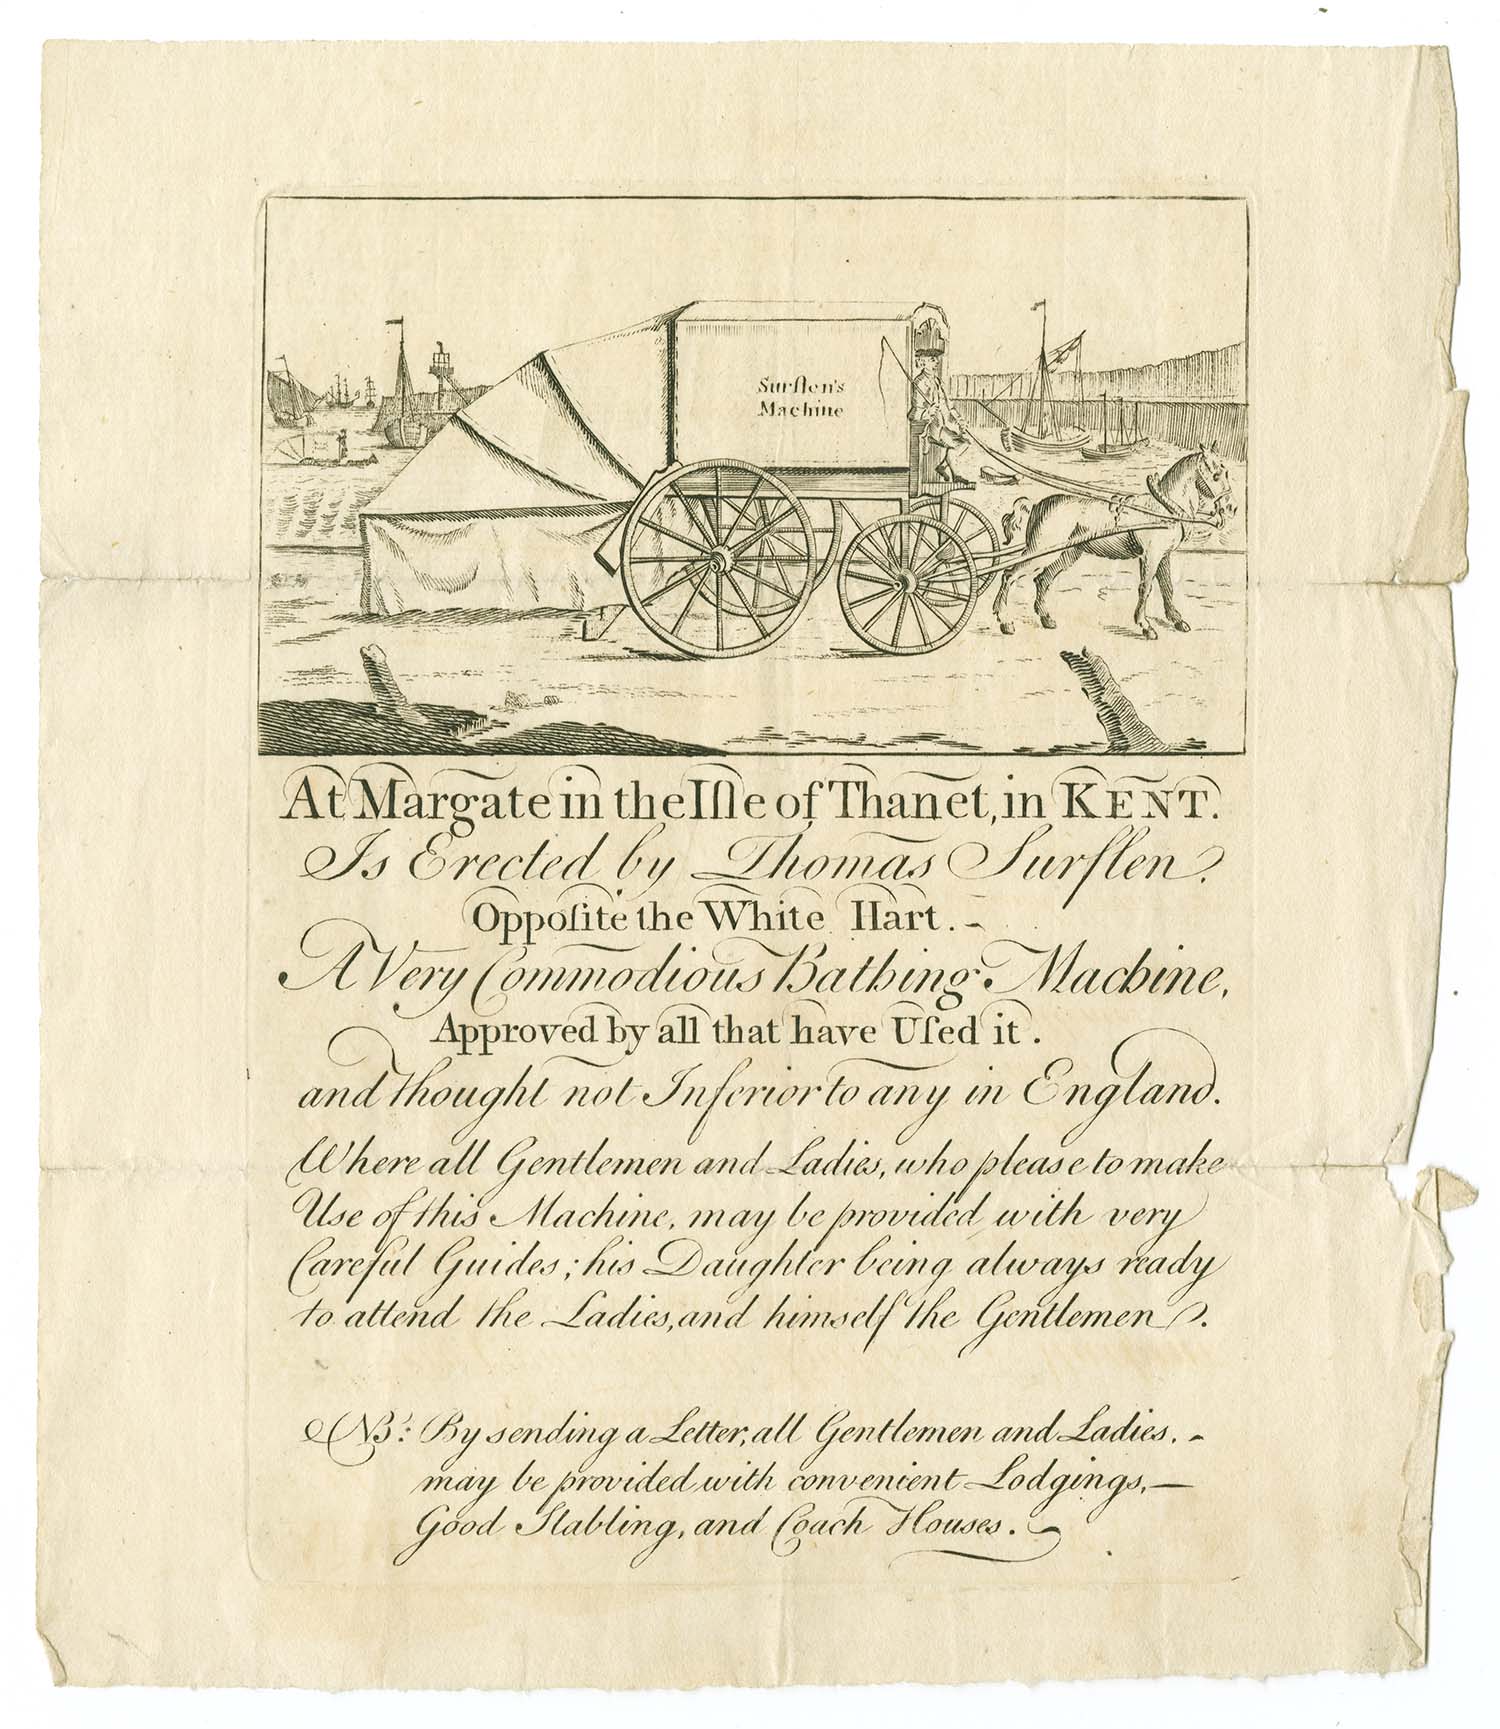 Surflen's
Machine
At Margate in the Iſle of Thanet, in KENT.
Is Erected by Thomas Surflen.
Oppoſite the White Hart.
A Very Commodious Bathing Machine,
Approved by all that have Uſed it.
and thought not Inferior to any in England.
Where all Gentlemen and Ladies, who please to make
Use of this Machine, may be provided with very
Careful Guides; his Daughter being always ready
to attend the Ladies, and himself the Gentlemen.
NB: By sending a Letter, all Gentlemen and Ladies, -
may be provided with convenient Lodgings, —
Good Stabling, and Coach Houses.